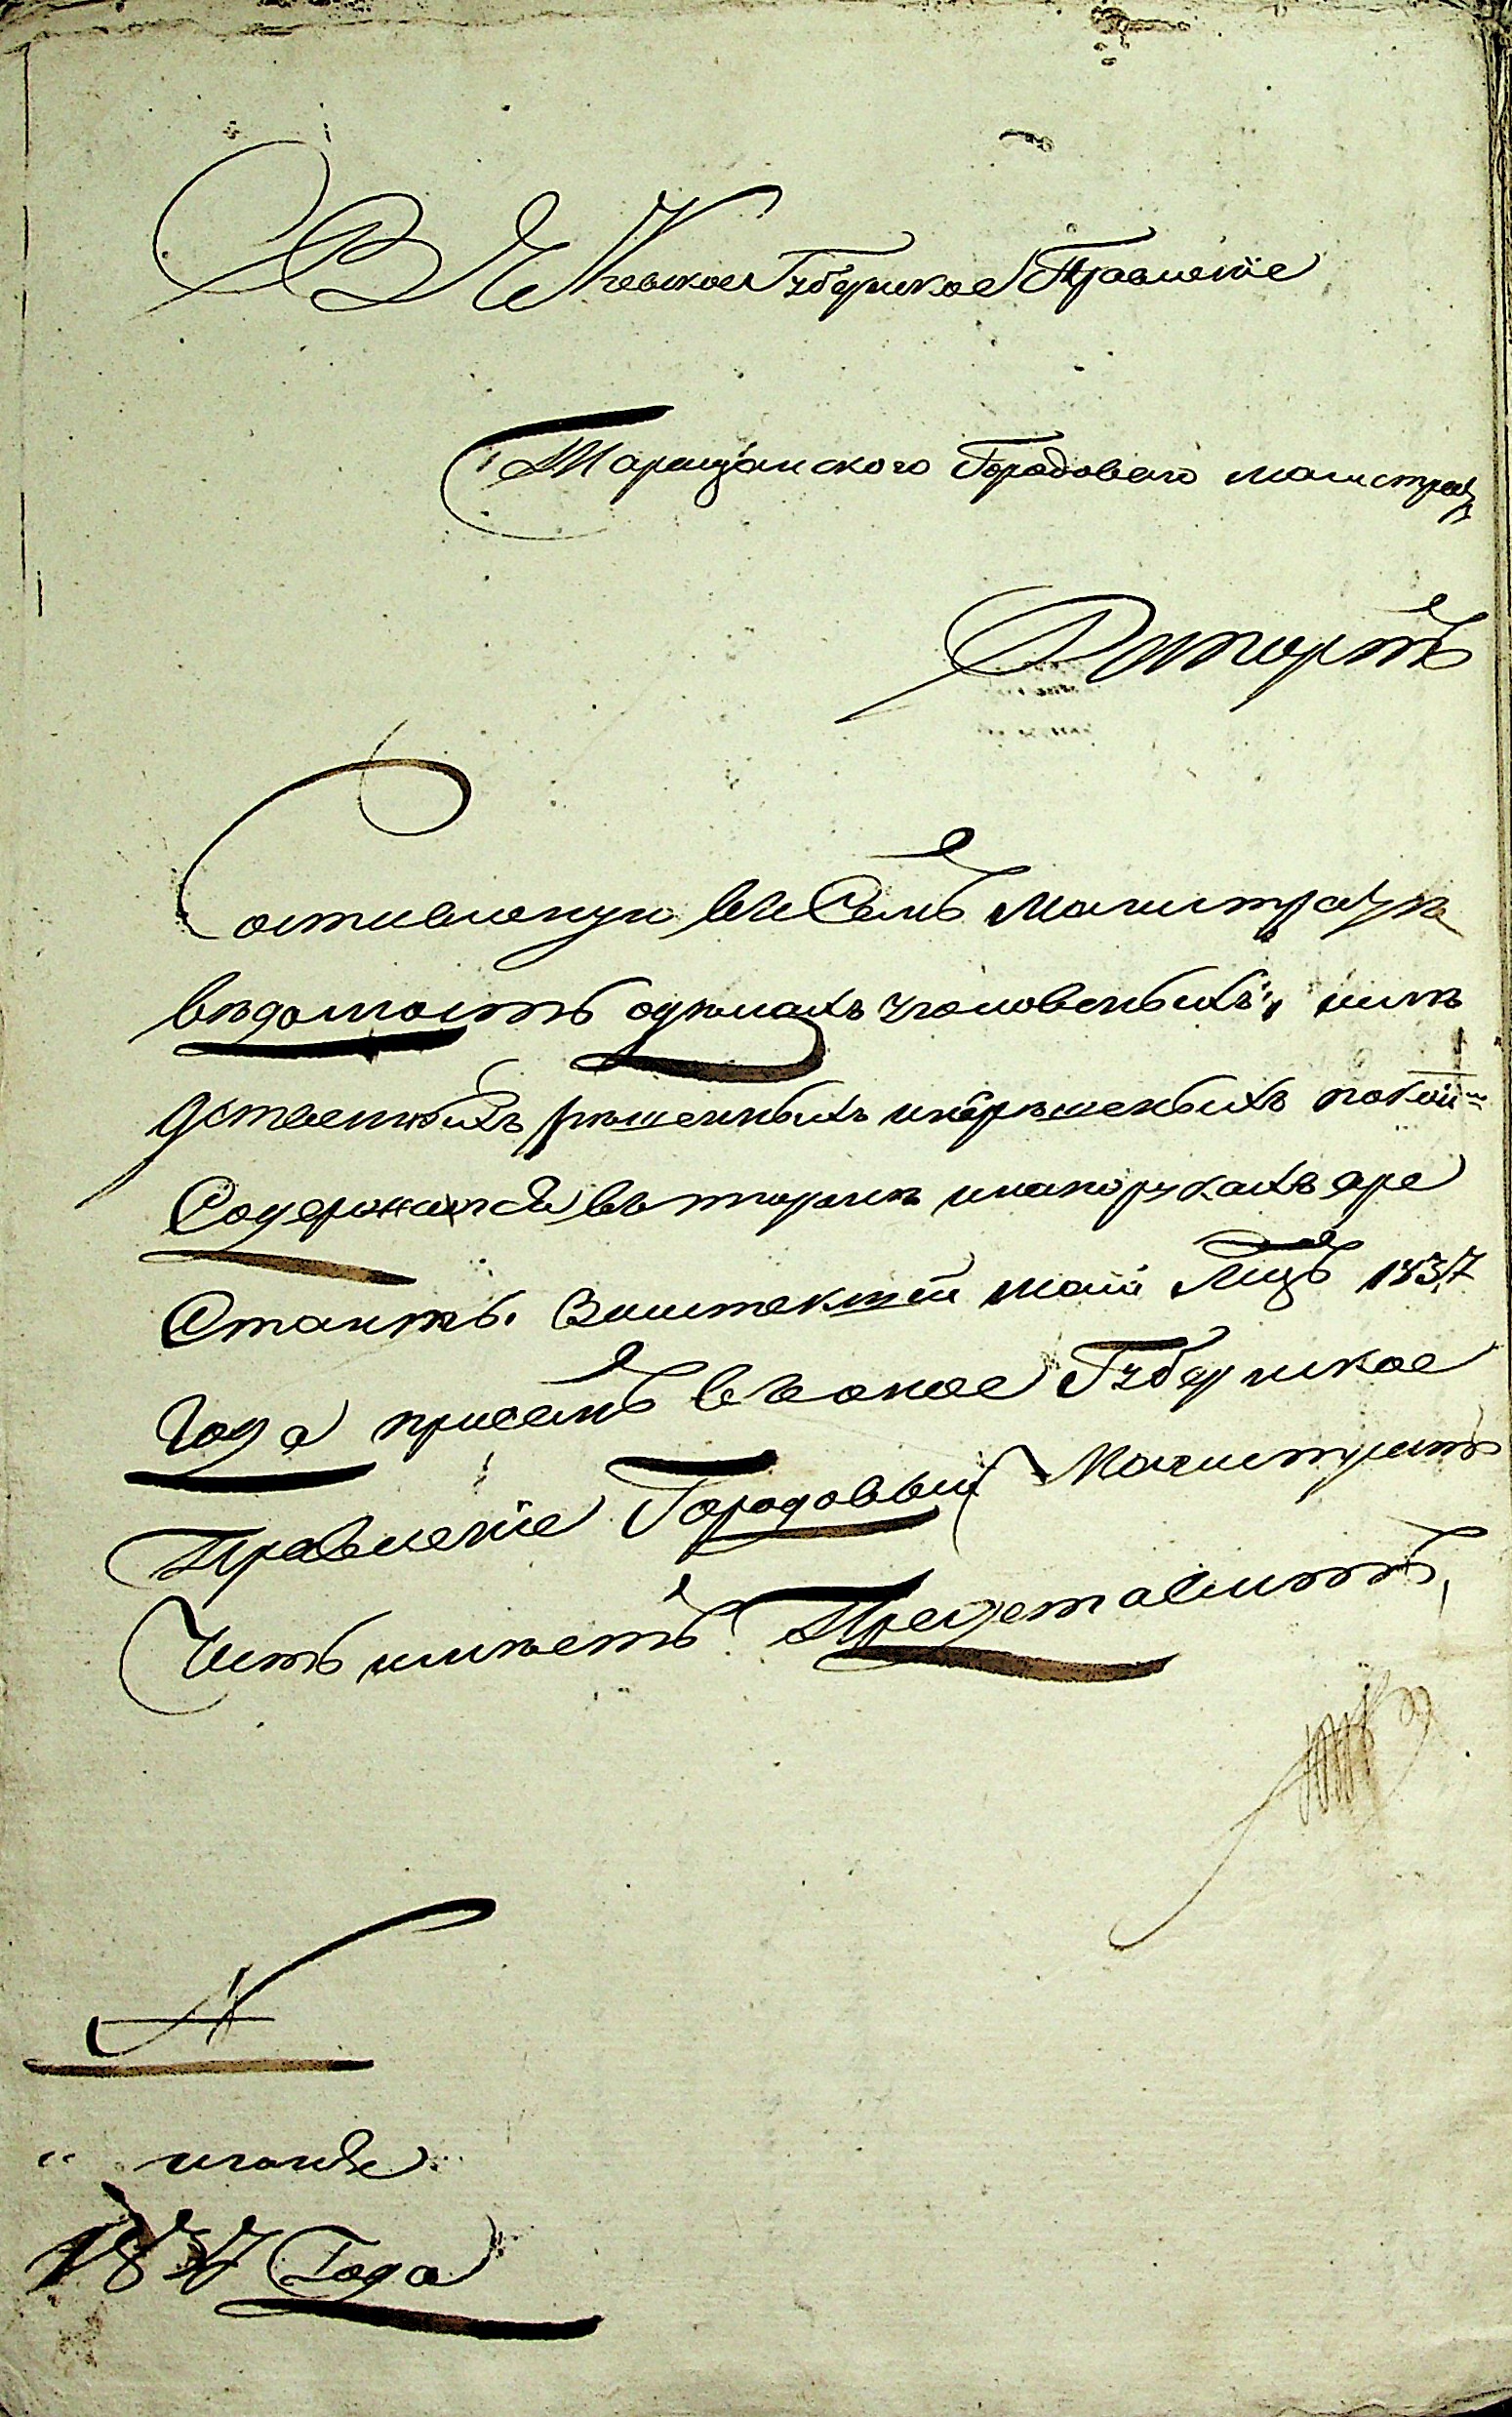 Въ Киевское Губернское Правленіе
Таращанского Городоваго магистрата
Рапортъ
Составленую въ Семъ Магистратѣ
вѣдомость одѣлахъ уголовныхъ, и слѣ
дственныхъ рѣшенныхъ и нерѣшеныхъ покоим
Содержатся въ тюрмѣ и на порукахъ аре
Станты. За истекшый май Мцъ 1837
Года присемъ въ оное Губернское
Правленіе Городовый Магистратъ
Честь имѣетъ Представить,
№
" июня
1837 Года